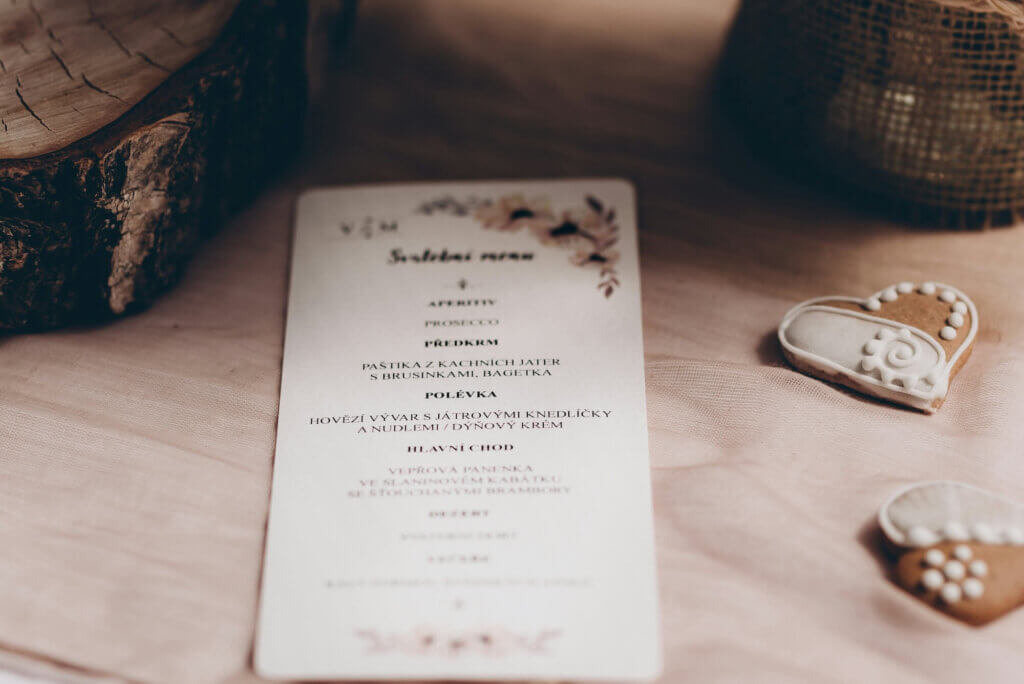 V & M
Svatební menu
APERITIV
PROSECCO
PŘEDKRM
PAŠTIKA Z KACHNÍCH JATER
S BRUSINKAMI, BAGETKA
POLÉVKA
HOVĚZÍ VÝVAR S JÁTROVÝMI KNEDLÍČKY
A NUDLEMI / DÝŇOVÝ KRÉM
HLAVNÍ CHOD
VEPŘOVÁ PANENKA
VE SLANINOVÉM KABÁTKU
SE ŠŤOUCHANÝMI BRAMBORY
DEZERT
VEČEŘE